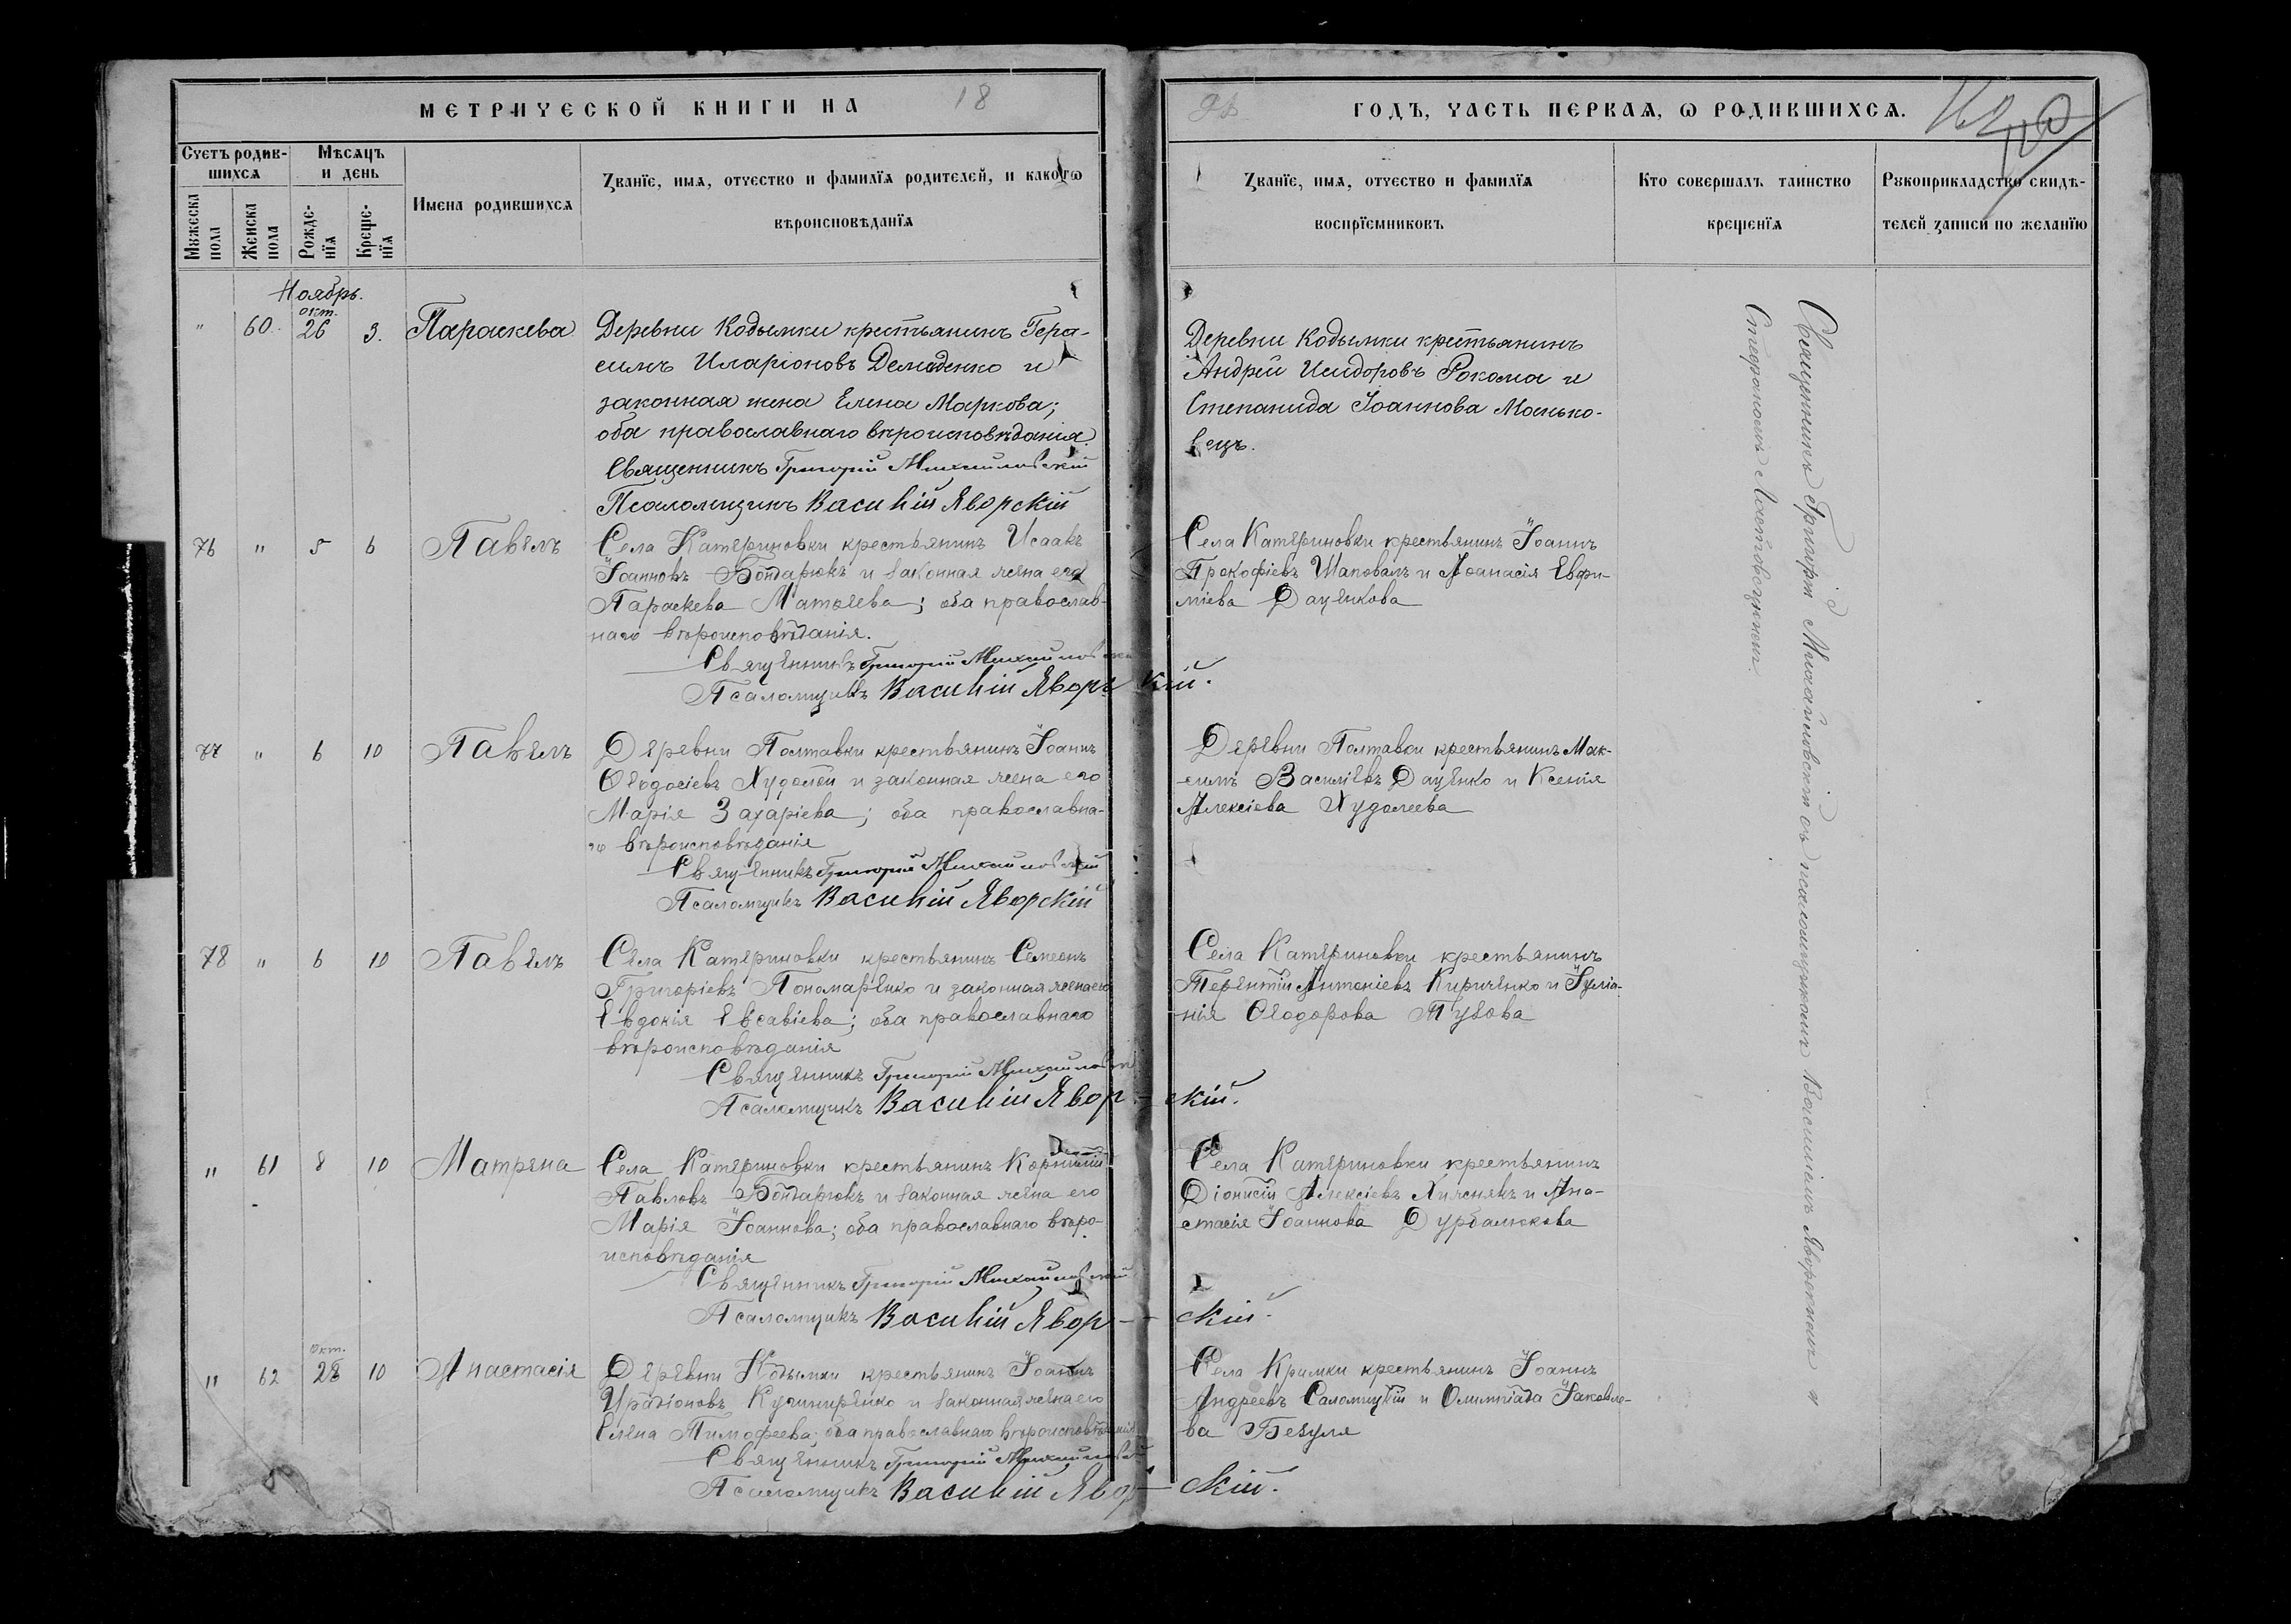 МЕТРИЧЕСКОЙ КНИГИ НА 18
ГОДЪ, ЧАСТЬ ПЕРВАЯ, Ѡ РОДИВШИХСѦ.
Счетъ родив-
шихсѧ
Мѣсѧцъ
и день
Мужеска
пола
Женска
пола
Рожде-
нїѧ
Креще-
нїѧ
Имена родившихсѧ
Званїе, имѧ, отчество и фамилїѧ родителей, и какогѡ
вѣроисповѣданїѧ
Званїе, имѧ, отчество и фамилїѧ
воспрїемниковъ
Кто совершалъ таинство
крещенїѧ
Рукоприкладство свидѣ-
телей записи по желанїю
Ноябрь.
окт.
" 60. 26 3. Параскева
Деревни Кодымки крестьянинъ Гера-
симъ Иларіоновъ Демиденко и
законная жена Елена Маркова;
оба православнаго вѣроисповѣданія.
Священникъ Григорій Михайловскій
Псаломщикъ Василій Яворскій
Деревни Кодымки крестьянинъ
Андрей Исидоровъ Рокома и
Степанида Іоаннова Манько-
вецъ.
76 " 5 6 Павелъ
Села Катериновки крестьянинъ Исаакъ
Іоанновъ Бондарюкъ и законная жена его
Параскева Матѳеева; оба православ-
наго вѣроисповѣданія.
Священникъ Григорій Михайловскій
Псаломщикъ Василій Яворскій.
Села Катериновки крестьянинъ Іоаннъ
Прокофіевъ Шаповалъ и Аѳанасія Евфи-
міева Даценкова
77 " 6 10 Павелъ
Деревни Полтавки крестьянинъ Іоаннъ
Ѳеодосіевъ Худолей и законная жена его
Марія Захаріева; оба православна-
го вѣроисповѣданія
Священникъ Григорій Михайловскій
Псаломщикъ Василій Яворскій
Деревни Полтавки крестьянинъ Мак-
симъ Василіевъ Даценко и Ксенія
Алексіева Худолеева
78 " 6 10 Павелъ
Села Катериновки крестьянинъ Симеонъ
Григоріевъ Пономаренко и законная жена его
Евдокія Евсавіева; оба православнаго
вѣроисповѣданія
Священникъ Григорій Михайловскій
Псаломщикъ Василій Явор-скій.
Села Катериновки крестьянинъ
Терентій Антоніевъ Кириченко и Іуліа-
нія Ѳеодорова
" 61 8 10 Матрена
Села Катериновки крестьянинъ Корнилій
Павловъ Бондарюкъ и законная жена его
Марія Іоаннова; оба православнаго вѣро-
исповѣданія
Священникъ Григорій Михайловскій
Псаломщикъ Василій Явор--скій.
Села Катериновки крестьянинъ
Діонисій Алексіевъ Хижнякъ и Ана-
стасія Іоаннова
окт.
" 62 28 10 Анастасія
Деревни Кодымки крестьянинъ Іоаннъ
Иродіоновъ Кучниренко и законная жена его
Елена Тимофеева; оба православнаго вѣроисповѣданія
Священникъ Григорій Михайловскій
Псаломщикъ Василій Явор-скій.
Села Кримки крестьянинъ Іоаннъ
Андреевъ и Олимпіада Іаковле-
ва Безуля
Священникъ Григорій Михайловскій съ псаломщикомъ Василіемъ Яворскимъ и
Стефаномъ